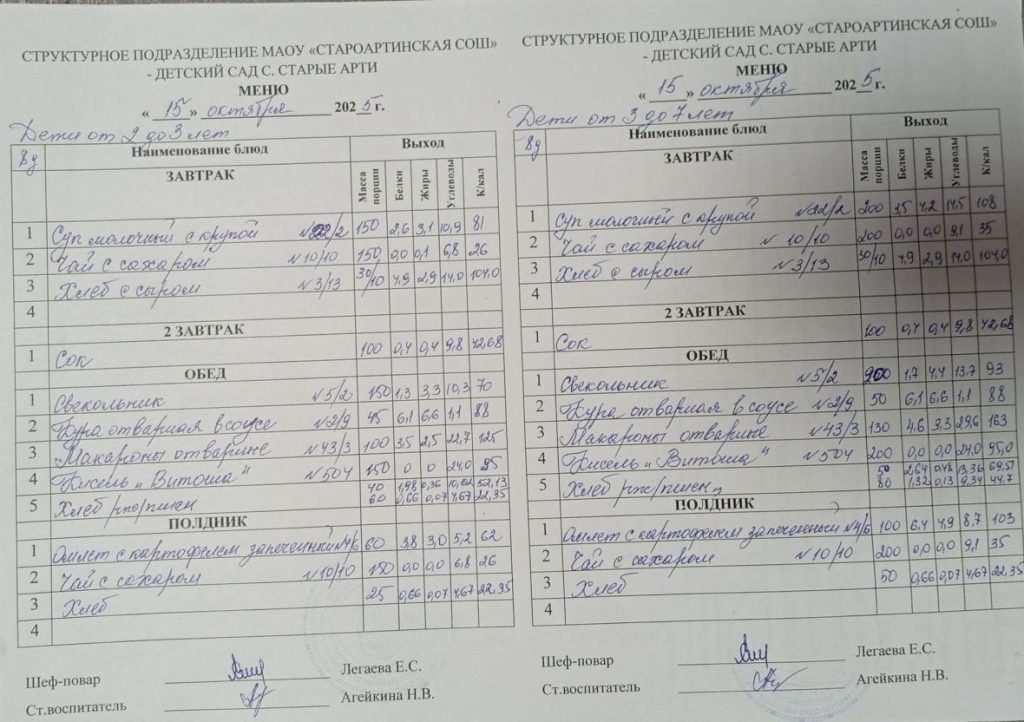 СТРУКТУРНОЕ ПОДРАЗДЕЛЕНИЕ МАОУ «СТАРОАРТИНСКАЯ СОШ»
- ДЕТСКИЙ САД С. СТАРЫЕ АРТИ
МЕНЮ
« 15 » октября 2025 г.
Дети от 2 до 3 лет
8д Наименование блюд Выход
ЗАВТРАК Масса порции Белки Жиры Углеводы К/кал
1 Суп молочный с крупой №22/2 150 2,6 3,1 10,9 81
2 Чай с сахаром №10/10 150 0,0 0,1 6,8 26
3 Хлеб с сыром №3/13 30/10 4,9 2,9 14,0 104,0
4
2 ЗАВТРАК
1 Сок 100 0,4 0,4 9,8 42,68
ОБЕД
1 Свекольник №5/2 150 1,3 3,3 10,3 70
2 Кура отварная в соусе №2/9 45 6,1 6,6 1,1 88
3 Макароны отварные №43/3 100 3,5 2,5 22,7 125
4 Кисель „Витоша" №504 150 0 0 24,0 85
5 Хлеб рже/пшен 40 1,98 0,36 10,02 52,13
60 0,66 0,07 4,67 22,35
ПОЛДНИК
1 Омлет с картофелем запеченный №4/6 60 3,8 3,0 5,2 62
2 Чай с сахаром №10/10 150 0,0 0,0 6,8 26
3 Хлеб 25 0,66 0,07 4,67 22,35
4
Шеф-повар Легаева Е.С.
Ст.воспитатель Агейкина Н.В.
СТРУКТУРНОЕ ПОДРАЗДЕЛЕНИЕ МАОУ «СТАРОАРТИНСКАЯ СОШ»
- ДЕТСКИЙ САД С. СТАРЫЕ АРТИ
МЕНЮ
« 15 » октября 2025 г.
Дети от 3 до 7 лет
8д Наименование блюд Выход
ЗАВТРАК Масса порции Белки Жиры Углеводы К/кал
1 Суп молочный с крупой №22/2 200 3,5 4,2 14,5 108
2 Чай с сахаром №10/10 200 0,0 0,0 9,1 35
3 Хлеб с сыром №3/13 30/10 4,9 2,9 14,0 104,0
4
2 ЗАВТРАК
1 Сок 100 0,4 0,4 9,8 42,68
ОБЕД
1 Свекольник №5/2 200 1,7 4,4 13,7 93
2 Кура отварная в соусе №2/9 50 6,1 6,6 1,1 88
3 Макароны отварные №43/3 130 4,6 3,3 29,6 163
4 Кисель „Витоша" №504 200 0,0 0,0 24,0 95,0
5 Хлеб рже/пшен 50 2,64 0,48 13,36 69,51
80 1,32 0,13 9,34 44,7
ПОЛДНИК
1 Омлет с картофелем запеченный №4/6 100 6,4 4,9 8,7 103
2 Чай с сахаром №10/10 200 0,0 0,0 9,1 35
3 Хлеб 50 0,66 0,07 4,67 22,35
4
Шеф-повар Легаева Е.С.
Ст.воспитатель Агейкина Н.В.